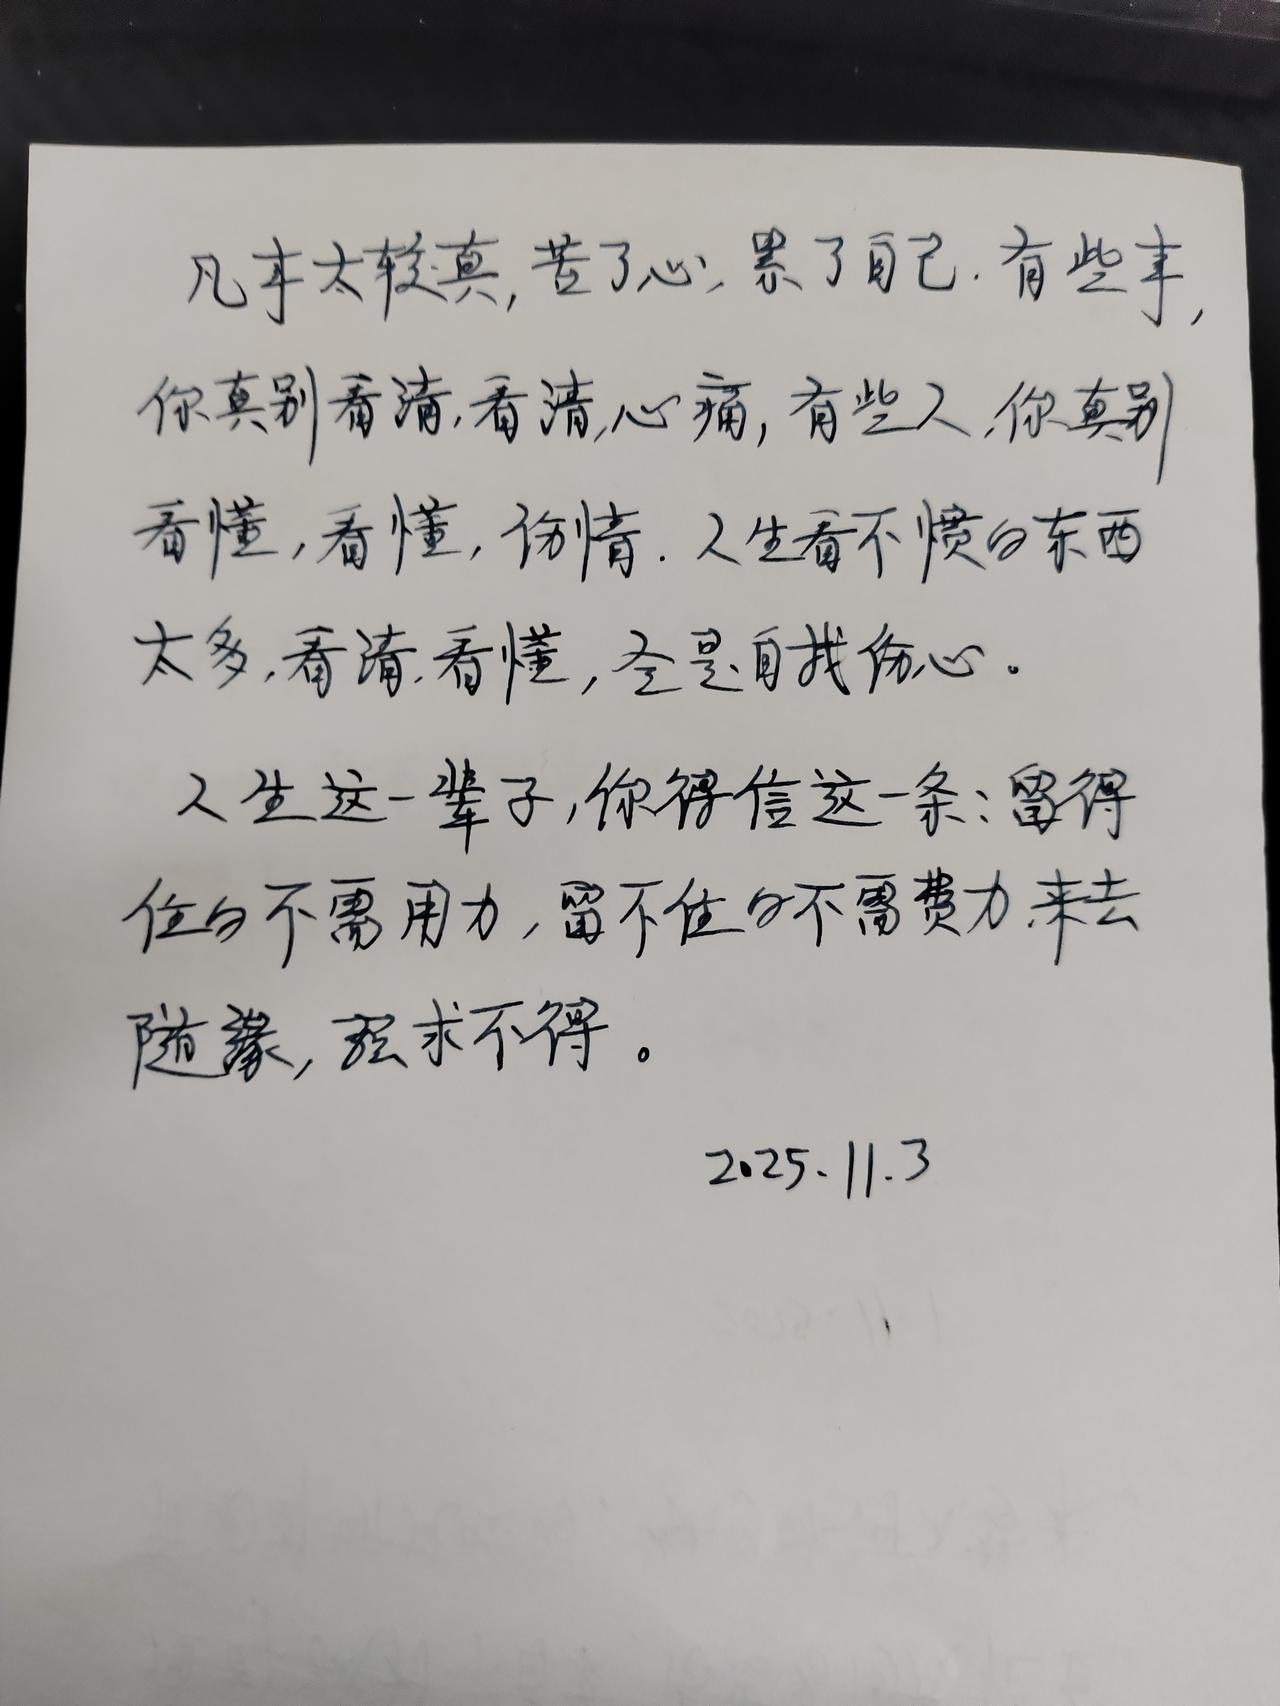 凡事太较真,苦了心,累了自己.有些事,
你真别看清,看清,心痛,有些人,你真别
看懂,看懂,伤情.人生看不惯的东西
太多,看清,看懂,全是自找伤心。
人生这一辈子,你得信这一条:留得
住的不需用力,留不住的不需费力,来去
随缘,强求不得。
2025.11.3